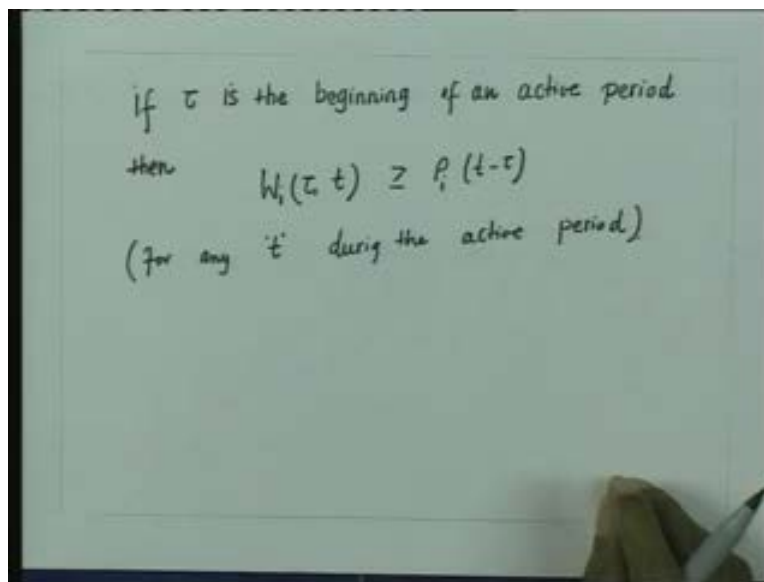 if τ is the beginning of an active period
then W₁(τ, t) ≥ ρ₁(t-τ)
(for any 't' durig the active period)